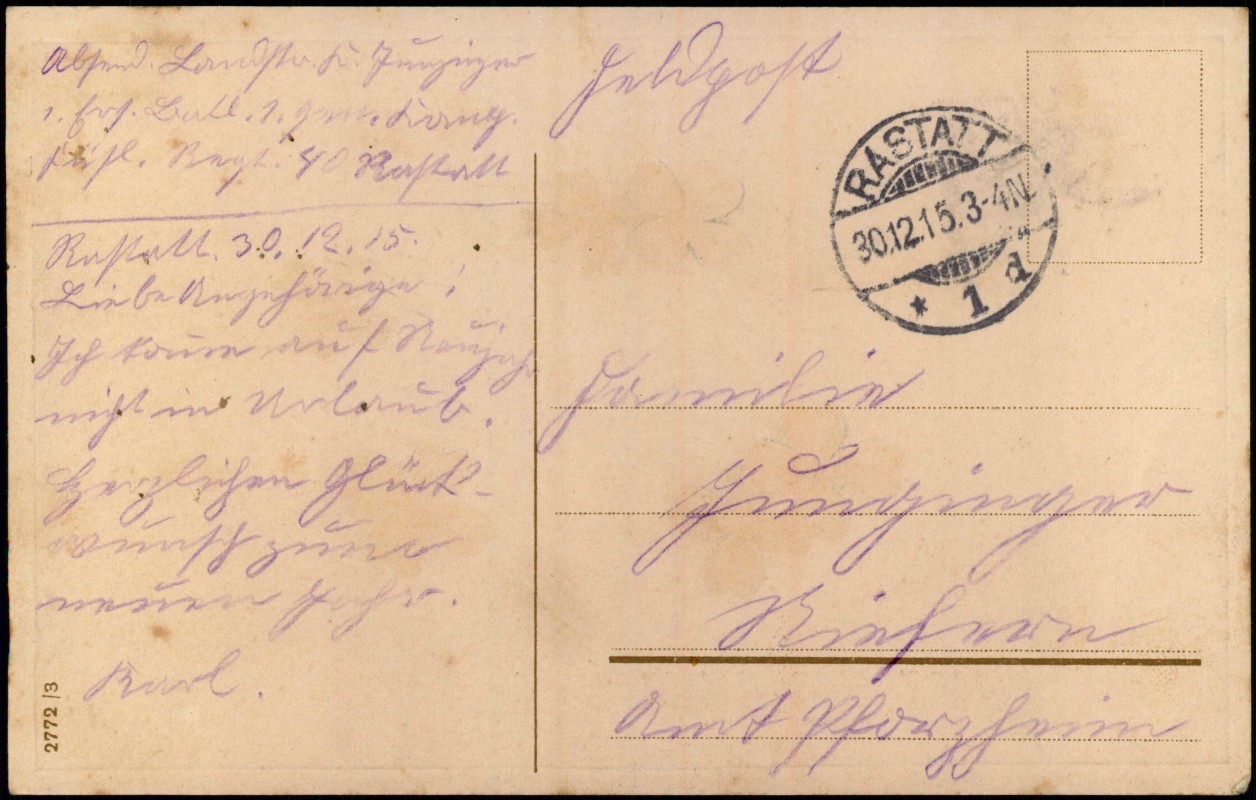 Absend. Landstr. K. Junginger
1. Ers. Batl. 1. gen. Komp.
Füsl. Regt. 40 Rastatt
Rastatt. 30. 12. 15.
Liebe Angehörige!
Ich komme auf Neujahr
nicht in Urlaub.
Herzlichen Glück-
wunsch zum
neuen Jahr.
Karl.
2772/3
Feldpost
RASTATT
30.12.15.3-4N.
* 1 d
Familie
Junginger
Niefern
Amt Pforzheim